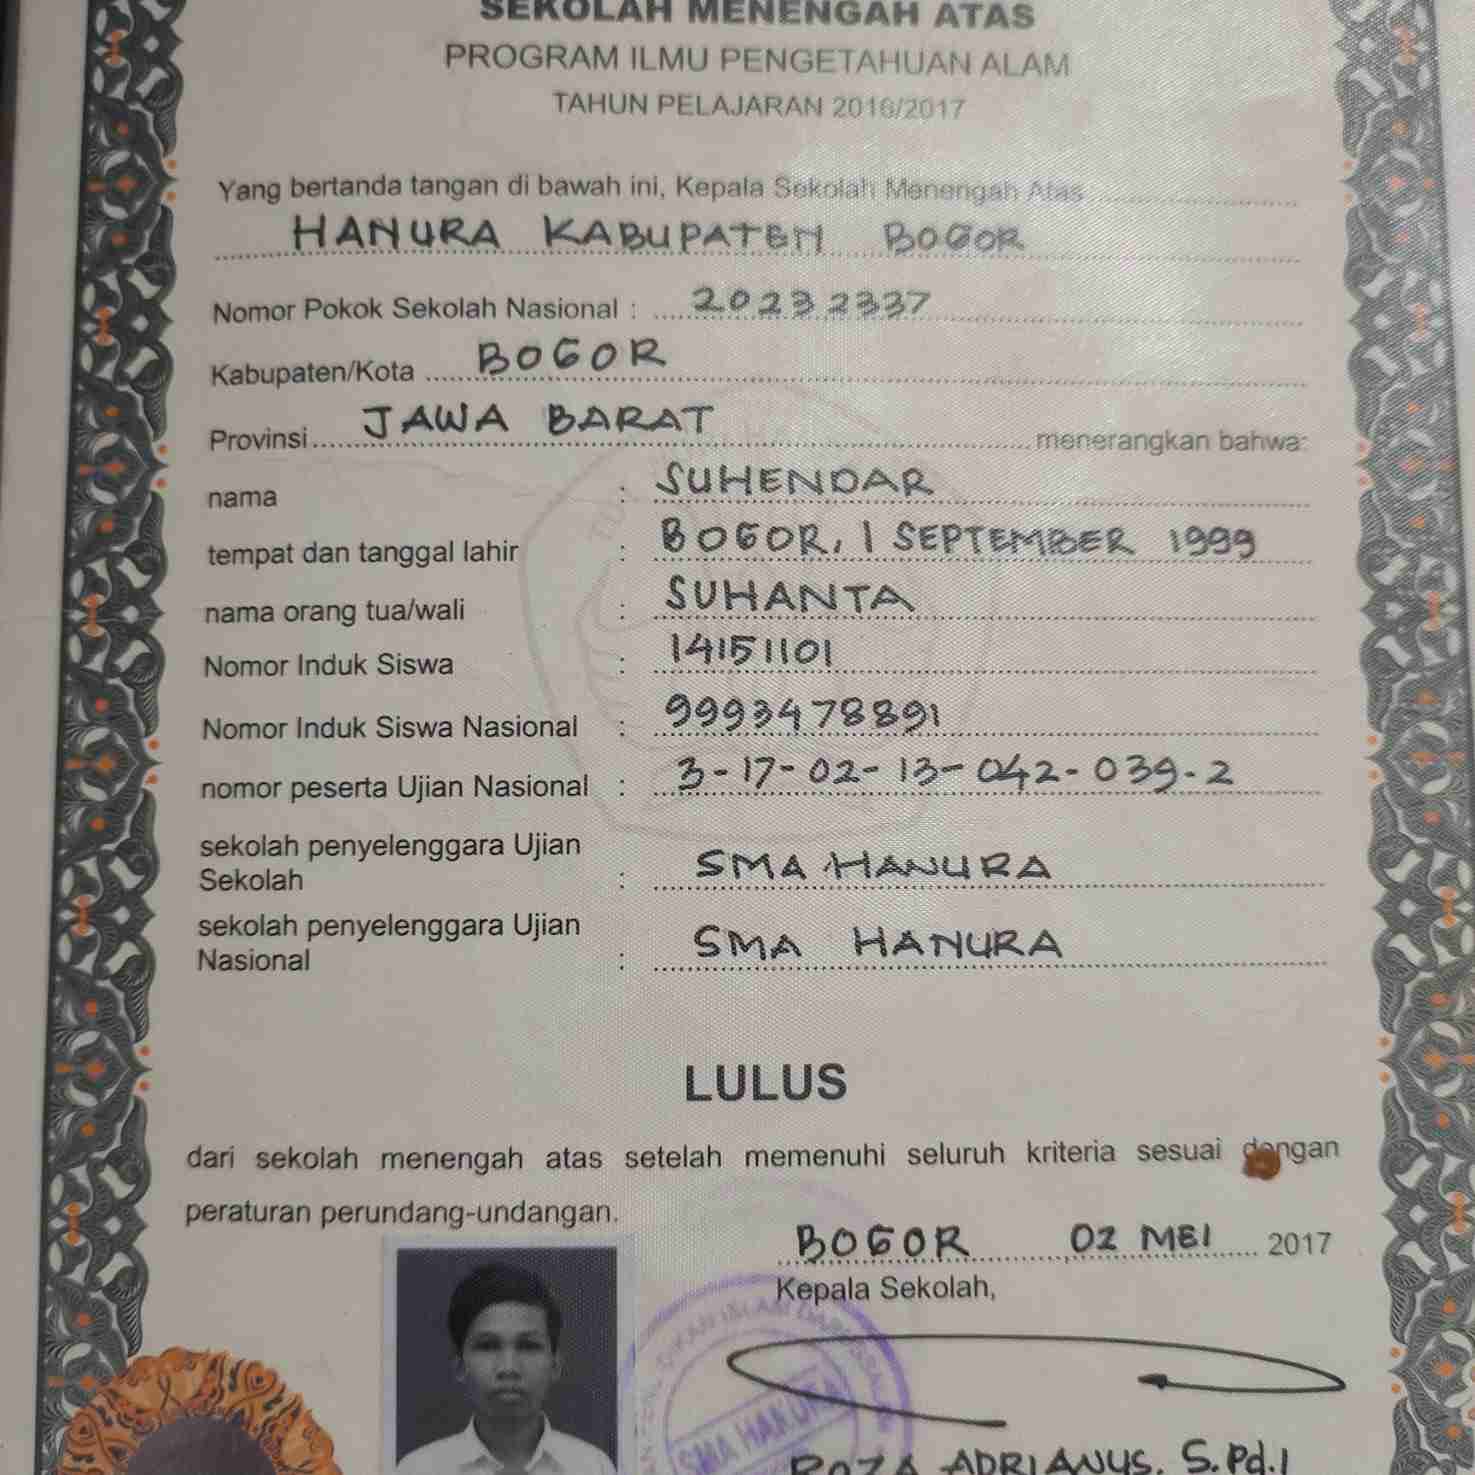 SEKOLAH MENENGAH ATAS
PROGRAM ILMU PENGETAHUAN ALAM
TAHUN PELAJARAN 2016/2017
Yang bertanda tangan di bawah ini, Kepala Sekolah Menengah Atas
HANURA KABUPATEN BOGOR
Nomor Pokok Sekolah Nasional : 20232337
Kabupaten/Kota BOGOR
Provinsi JAWA BARAT menerangkan bahwa:
nama : SUHENDAR
tempat dan tanggal lahir : BOGOR, 1 SEPTEMBER 1999
nama orang tua/wali : SUHANTA
Nomor Induk Siswa : 14151101
Nomor Induk Siswa Nasional : 9993478891
nomor peserta Ujian Nasional : 3-17-02-13-042-039-2
sekolah penyelenggara Ujian
Sekolah : SMA HANURA
sekolah penyelenggara Ujian
Nasional : SMA HANURA
LULUS
dari sekolah menengah atas setelah memenuhi seluruh kriteria sesuai dengan
peraturan perundang-undangan.
BOGOR 02 MEI 2017
Kepala Sekolah,
SMA HANURA
ROZA ADRIANUS, S.Pd.I